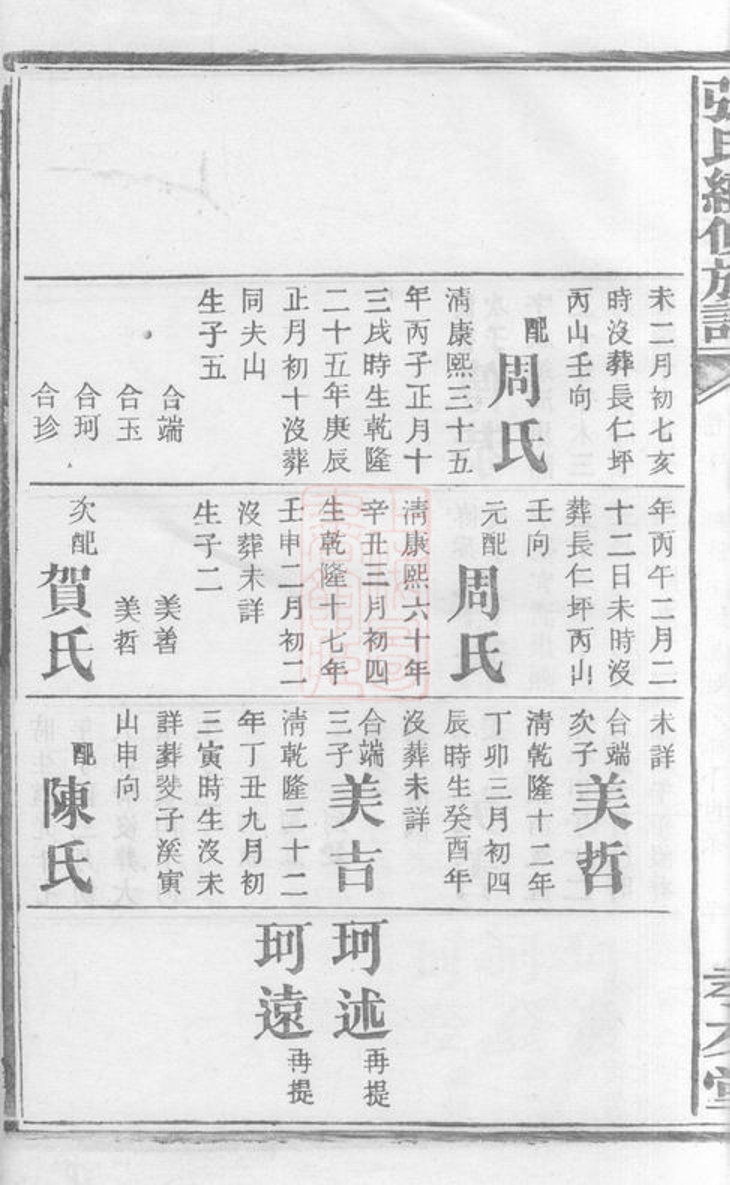 張氏續修族譜
孝友堂
未二月初七亥
時沒葬長仁坪
丙山壬向
配周氏
清康熙三十五
年丙子正月十
三戌時生乾隆
二十五年庚辰
正月初十沒葬
同夫山
生子五
合端
合玉
合珂
合珍
年丙午二月二
十二日未時沒
葬長仁坪丙山
壬向
元配周氏
清康熙六十年
辛丑三月初四
生乾隆十七年
壬申二月初二
沒葬未詳
生子二
美善
美哲
次配賀氏
未詳
合端次子美哲
清乾隆十二年
丁卯三月初四
辰時生癸酉年
沒葬未詳
合端三子美吉
清乾隆二十二
年丁丑九月初
三寅時生沒未
詳葬㸚子溪寅
山申向
配陳氏
珂述再提
珂遠再提